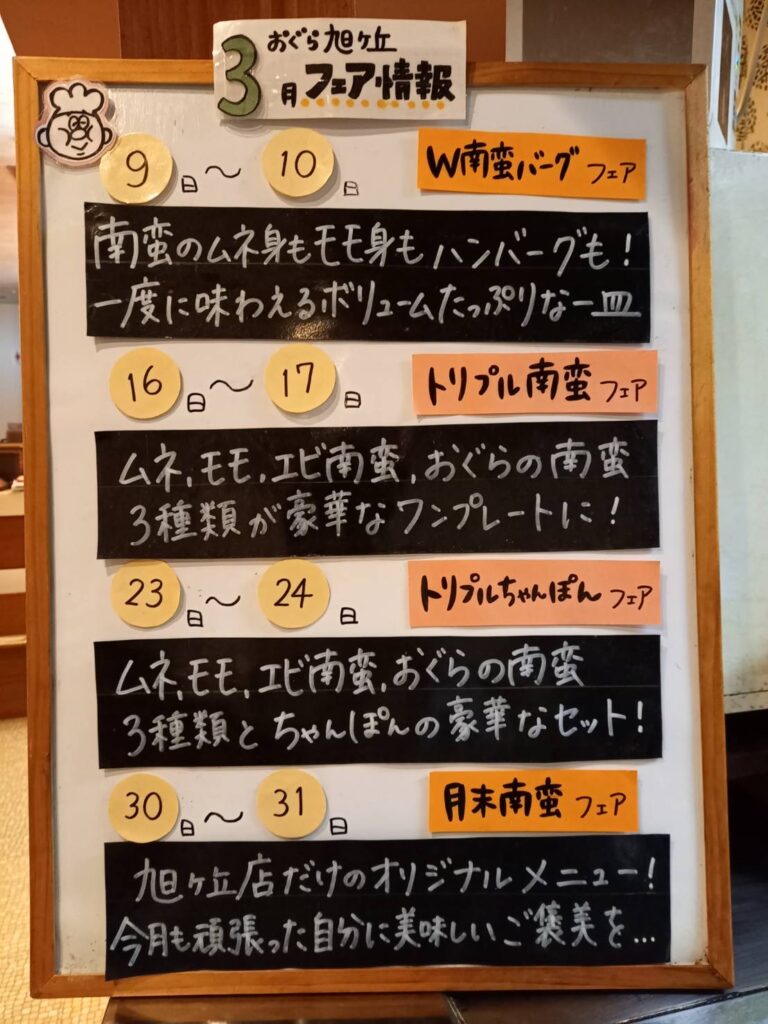 おぐら旭ヶ丘
3月フェア情報
9日～10日 W南蛮バーグフェア
南蛮のムネ身もモモ身もハンバーグも!
一度に味わえるボリュームたっぷりな一皿
16日～17日 トリプル南蛮フェア
ムネ,モモ,エビ南蛮,おぐらの南蛮
3種類が豪華なワンプレートに!
23日～24日 トリプルちゃんぽんフェア
ムネ,モモ,エビ南蛮,おぐらの南蛮
3種類とちゃんぽんの豪華なセット!
30日～31日 月末南蛮フェア
旭ヶ丘店だけのオリジナルメニュー!
今月も頑張った自分に美味しいご褒美を...